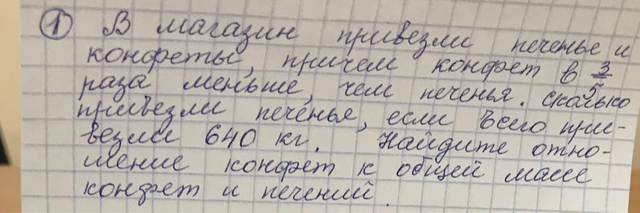 ① В магазин привезли печенье и
конфеты, причем конфет в 3/5
раза меньше, чем печенья. Сколько
привезли печенья, если всего при-
везли 640 кг. Найдите отно-
шение конфет к общей массе
конфет и печений.